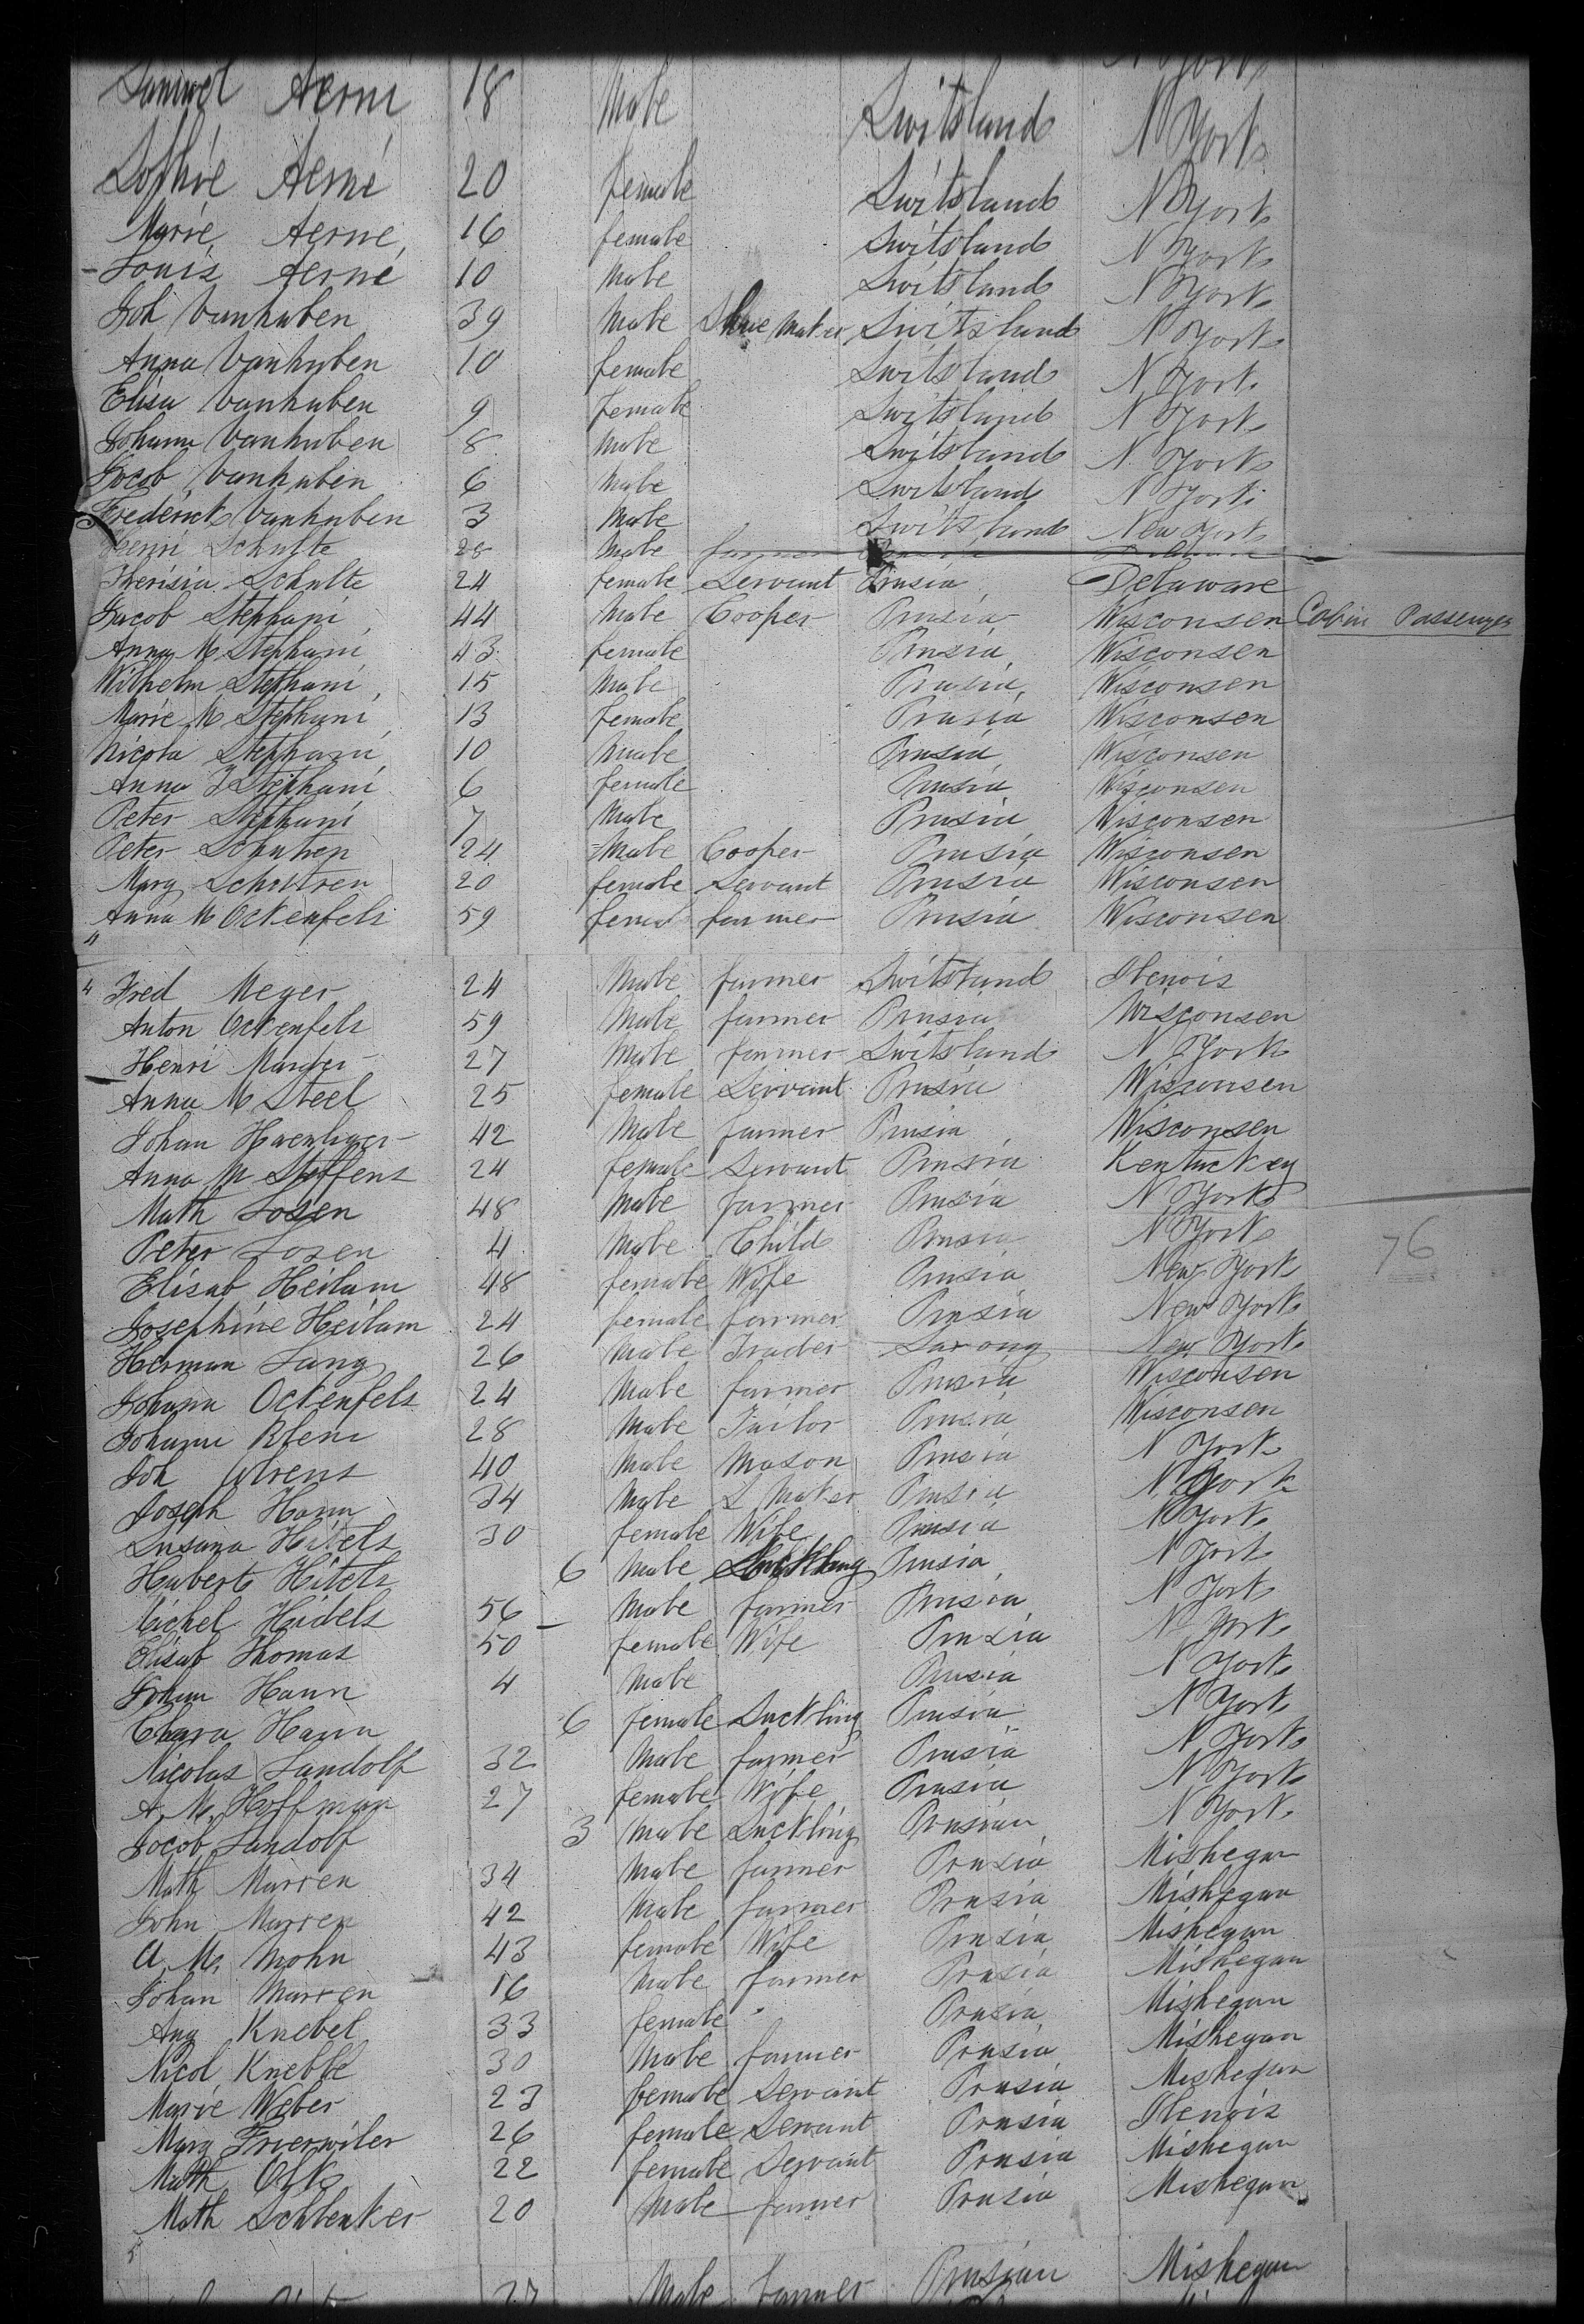 N York
Samuel Aerni 18 Male Switsland N York
Sophie Aerni 20 female Switsland N York
Marie Aerne 16 female Switsland N York
Louis Aerné 10 Male Switsland N York
Joh Vanhuben 39 Male Shue Maker Switsland N York
Anna Vanhuben 10 female Switsland N York
Elisa Vanhuben 9 female Switsland N York
Johann Vanhuben 8 Male Switsland N York
Jacob Vanhuben 6 Male Switsland N York
Frederick Vanhuben 3 Male Switsland New York
Henri Schulte 28 Male farmer
Therisia Schulte 24 female Servant Prusia Delaware
Jacob Stephani 44 Male Cooper Prusia Wisconsen Cabin Passenger
Anna M Stephani 43 female Prusia Wisconsen
Wilhelm Stephani 15 Male Prusia Wisconsen
Marie M Stephani 13 female Prusia Wisconsen
Nicola Stephani 10 Male Prusia Wisconsen
Anna J Stephani 6 female Prusia Wisconsen
Peter Stephani 7 Male Prusia Wisconsen
Peter 24 Male Cooper Prusia Wisconsen
Marg 20 female Servant Prusia Wisconsen
Anna M Ockenfels 59 female farmer Prusia Wisconsen
4
4 Fred Meyer 24 Male farmer Switsland Ilenois
Anton Ockenfels 59 Male farmer Prusia Wisconsen
Henri 27 Male farmer Switsland N York
Anna M Steel 25 female Servant Prusia Wisconsen
Johan 42 Male farmer Prusia Wisconsen
Anna M Steffens 24 female Servant Prusia Kentuckey
Math Losen 48 Male farmer Prusia N York
Peter Losen 4 Male Child Prusia N York
76
Elisab Heilam 48 female Wife Prusia New York
Josephine Heilam 24 female farmer Prusia New York
Herman Lang 26 Male Trader Saxony New York
Johann Ockenfels 24 Male farmer Prusia Wisconsen
Johann 28 Male Tailor Prusia Wisconsen
Joh Ahrens 40 Male Mason Prusia N York
Joseph Hann 34 Male S Maker Prusia N York
Susana Hitels 30 female Wife Prusia N York
Hubert Hitels 6 Male Suckling Prusia N York
Michel Hidels 56 Male farmer Prusia N York
Elisab Thomas 50 female Wife Prusia N York
Johan Hann 4 Male Prusia N York
Chara Hann 6 female Suckling Prusia N York
Nicolas Landolf 32 Male farmer Prusia N York
A. M. Hoffman 27 female Wife Prusia N York
Jocob Landolf 3 Male Suckling Prusian N York
Math Marren 34 Male farmer Prusia Mishegan
John Marren 42 Male farmer Prusia Mishegan
A. M. Mohn 43 female Wife Prusia Mishegan
Johan Marren 16 Male farmer Prusia Mishegan
Ang Knebel 33 female " Prusia Mishegan
Nicol Knebbl 30 Male farmer Prusia Mishegan
Marie Weber 23 female Servant Prusia Mishegan
Marg Frierwiler 26 female Servant Prusia Ilenois
Math Olks 22 female Servant Prusia Mishegan
Math Schlenker 20 Male farmer Prusia Mishegan
5
27 Male farmer Prusian Mishegan